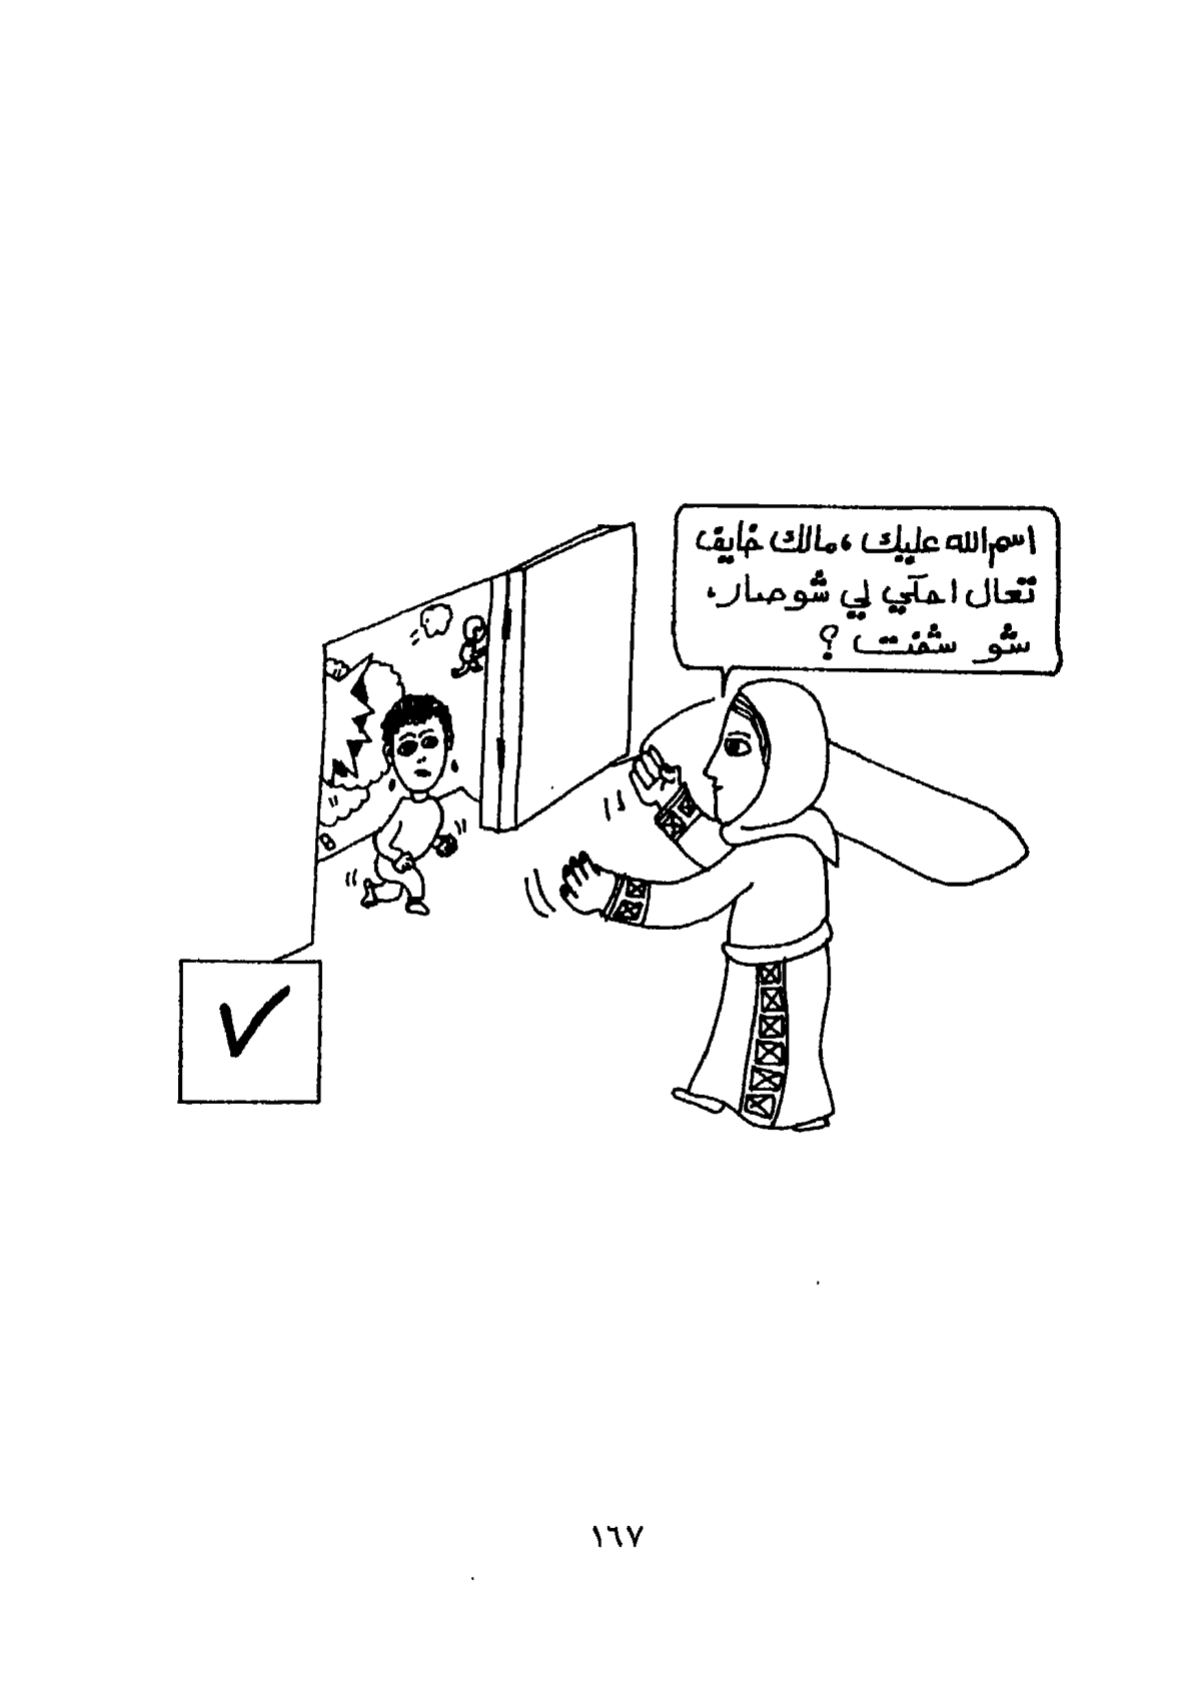 اسم الله عليك، مالك خايف
تعال احكي لي شو صار،
شو شفت ؟
١٦٧